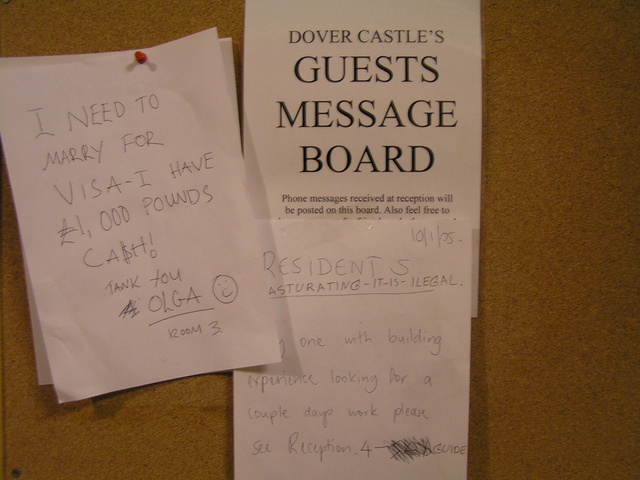 I NEED TO
MARRY FOR
VISA-I HAVE
£1,000 POUNDS
CA$H!
TANK YOU
OLGA
ROOM 3.
DOVER CASTLE'S
GUESTS
MESSAGE
BOARD
Phone messages received at reception will
be posted on this board. Also feel free to
10/1/05.
RESIDENT S
ASTURATING-IT-IS-ILEGAL.
one with building
experience looking for a
couple days work please
see Reception. 4 GUIDE